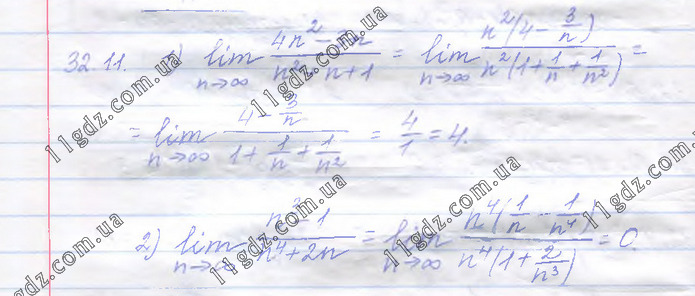 32.11. 1) lim n→∞ (4n² - 3n)/(n² + n + 1) = lim n→∞ n²(4 - 3/n)/n²(1 + 1/n + 1/n²) =
= lim n→∞ (4 - 3/n)/(1 + 1/n + 1/n²) = 4/1 = 4.
2) lim n→∞ 1/(n⁴ + 2n) = lim n→∞ n⁴(1/n - 1/n⁴)/n⁴(1 + 2/n³) = 0.
11gdz.com.ua
11gdz.com.ua
11gdz.com.ua
11gdz.com.ua
11gdz.com.ua
11gdz.com.ua